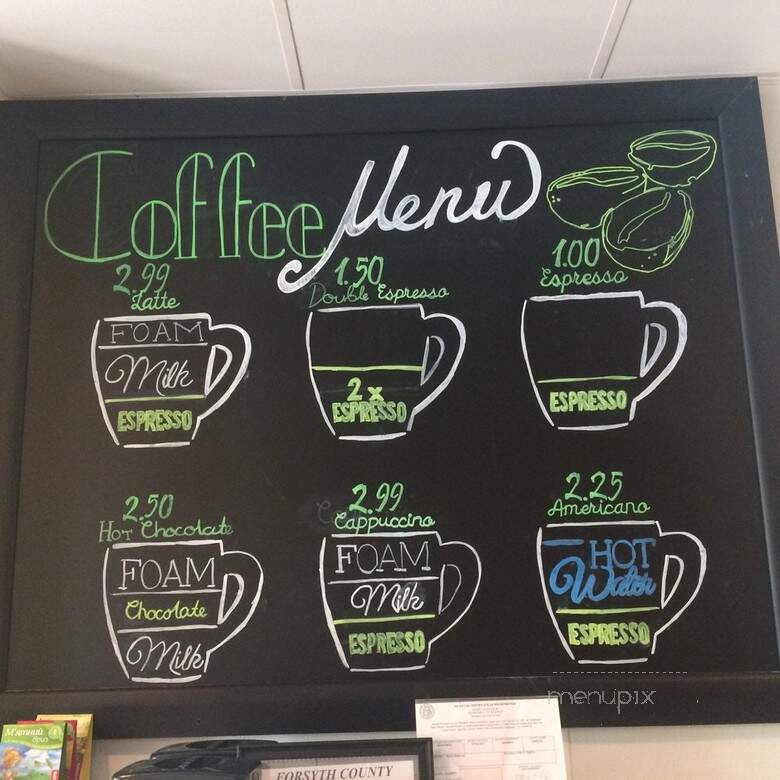 Coffee Menu
2.99
Latte
FOAM
Milk
ESPRESSO
1.50
Double Espresso
2x
ESPRESSO
1.00
Espresso
ESPRESSO
2.50
Hot Chocolate
FOAM
Chocolate
Milk
2.99
Cappuccino
FOAM
Milk
ESPRESSO
2.25
Americano
HOT
Water
ESPRESSO
menupix
М'ятний
FORSYTH COUNTY